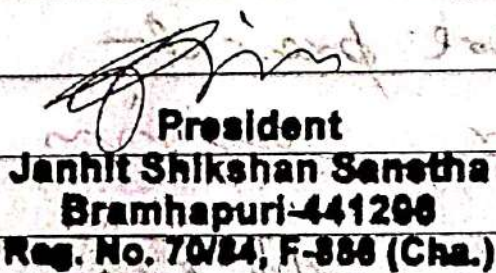 President
Janhit Shikshan Sanstha
Bramhapuri-441206
Reg. No. 70/84, F-886 (Cha.)